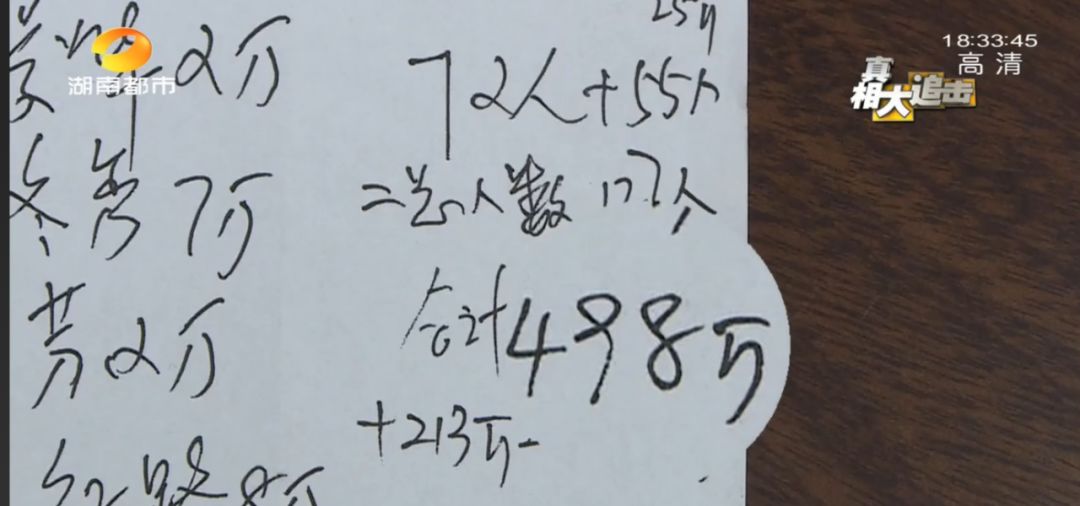 湖南都市
18:33:45
高清
真相大追击
2万
秀7万
芳2万
25万
72人+55人
二总人数177人
合计498万
+213万
8万